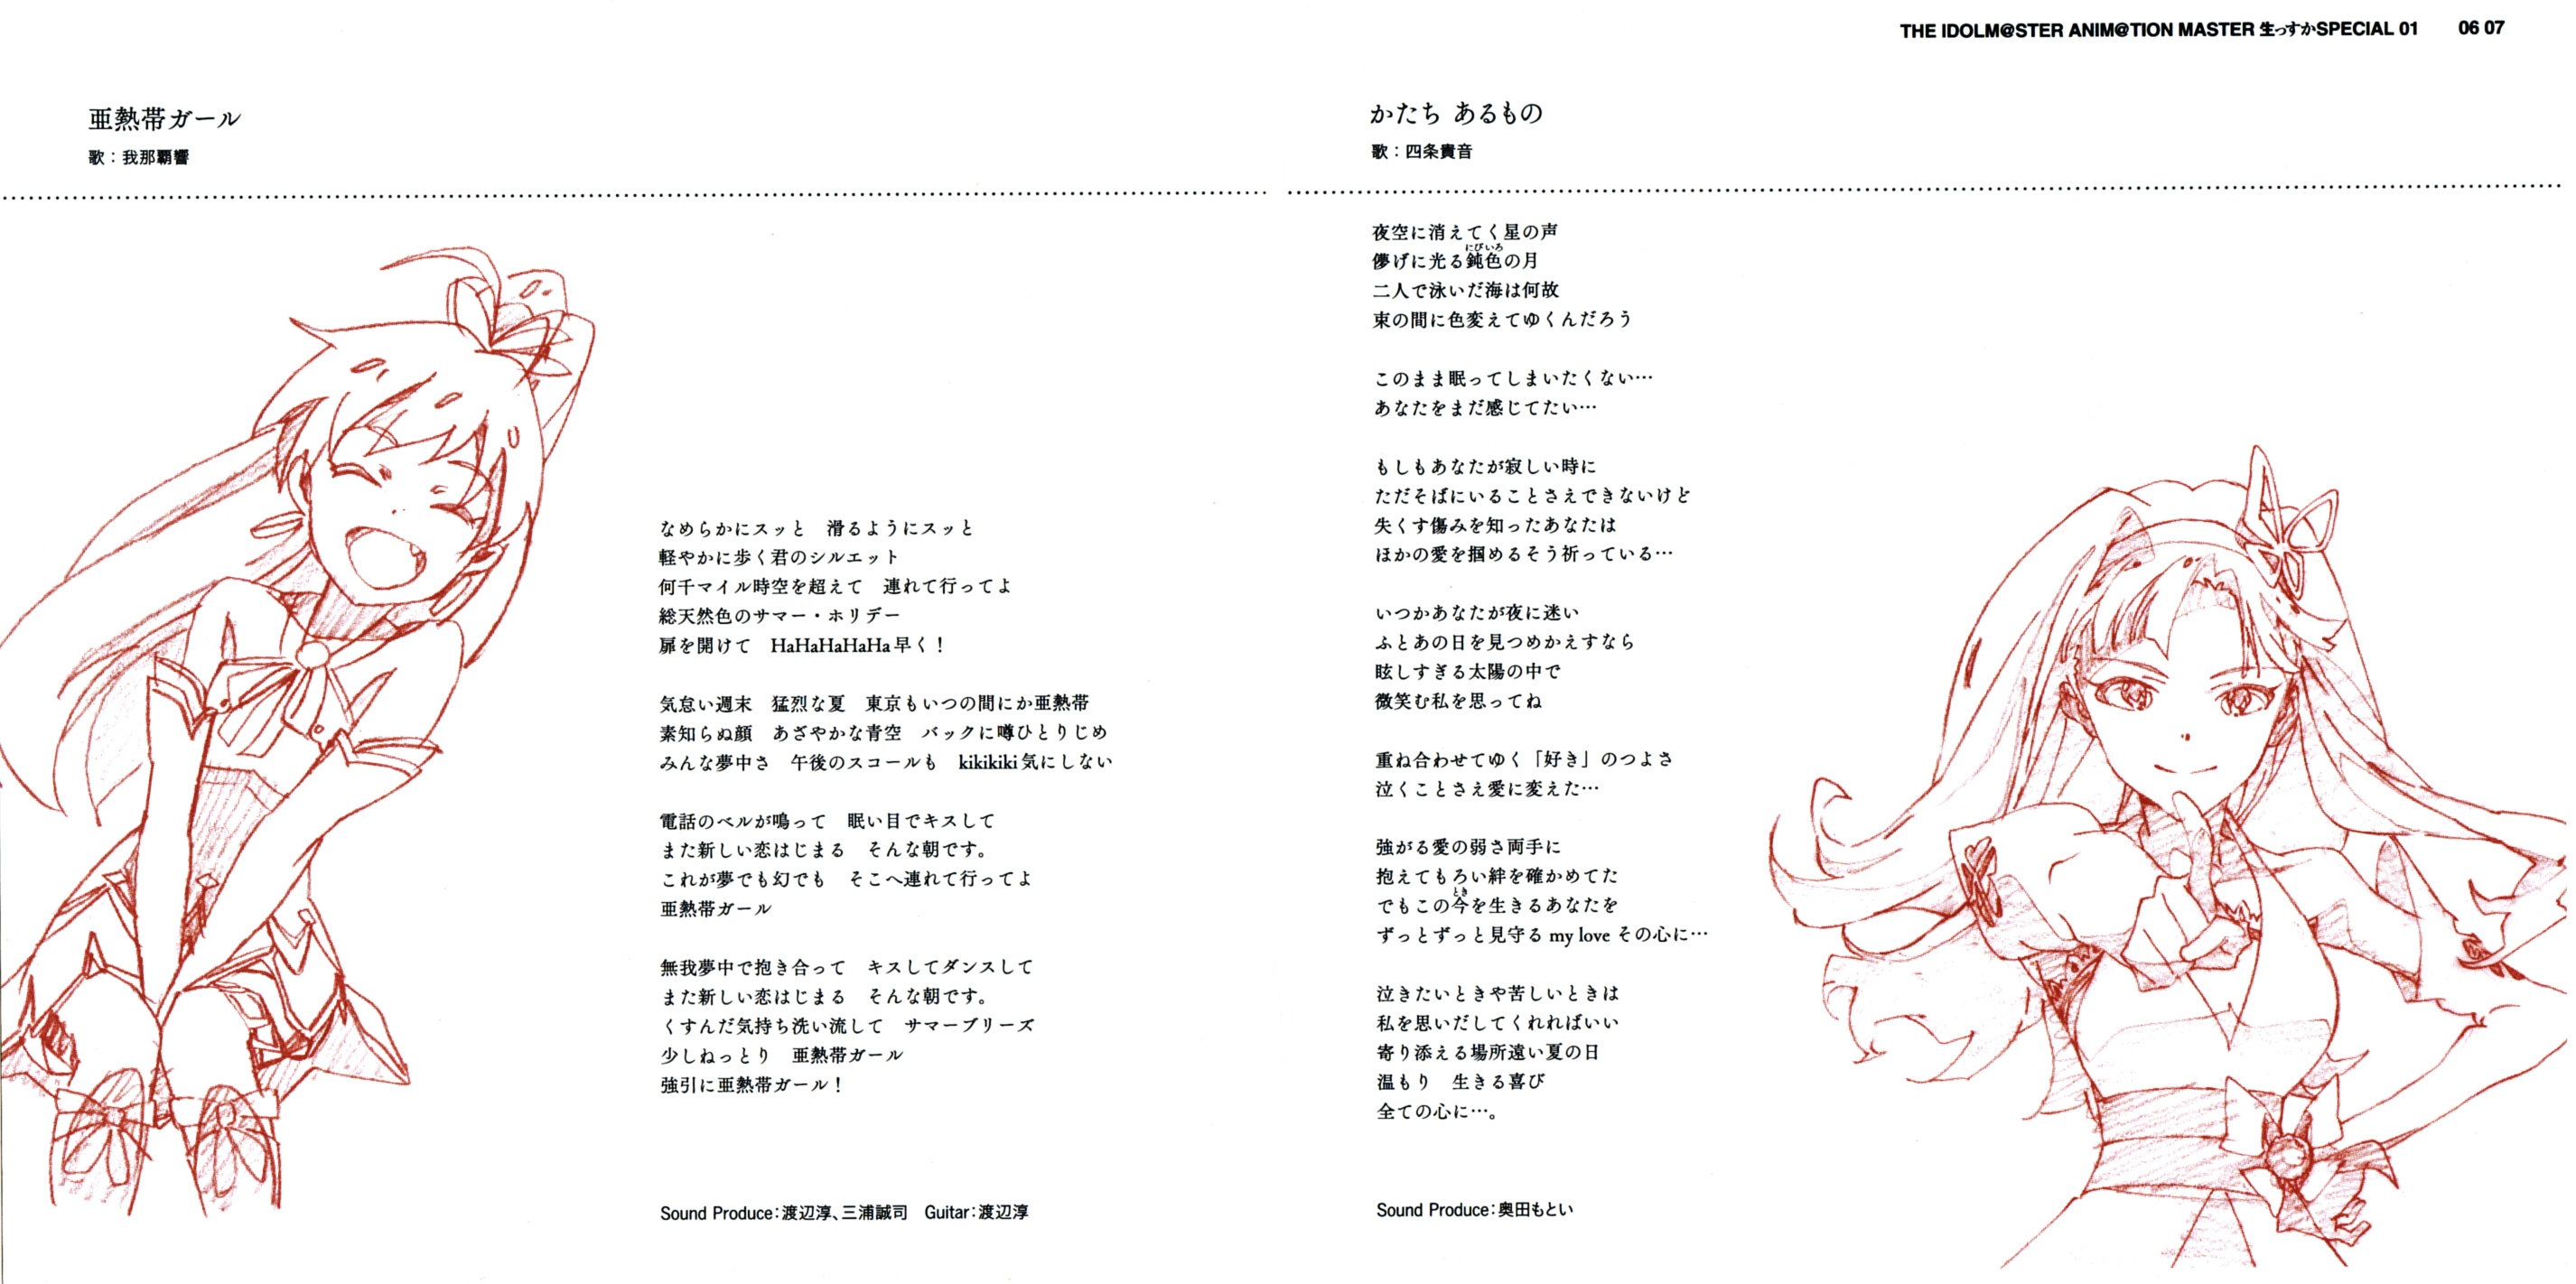 THE IDOLM@STER ANIM@TION MASTER 生っすかSPECIAL 01　06 07
亜熱帯ガール
歌：我那覇響
なめらかにスッと　滑るようにスッと
軽やかに歩く君のシルエット
何千マイル時空を超えて　連れて行ってよ
総天然色のサマー・ホリデー
扉を開けて　HaHaHaHaHa早く！
気怠い週末　猛烈な夏　東京もいつの間にか亜熱帯
素知らぬ顔　あざやかな青空　バックに噂ひとりじめ
みんな夢中さ　午後のスコールも　kikikiki気にしない
電話のベルが鳴って　眠い目でキスして
また新しい恋はじまる　そんな朝です。
これが夢でも幻でも　そこへ連れて行ってよ
亜熱帯ガール
無我夢中で抱き合って　キスしてダンスして
また新しい恋はじまる　そんな朝です。
くすんだ気持ち洗い流して　サマーブリーズ
少しねっとり　亜熱帯ガール
強引に亜熱帯ガール！
Sound Produce：渡辺淳、三浦誠司　Guitar：渡辺淳
かたち あるもの
歌：四条貴音
夜空に消えてく星の声
にびいろ
儚げに光る鈍色の月
二人で泳いだ海は何故
束の間に色変えてゆくんだろう
このまま眠ってしまいたくない…
あなたをまだ感じてたい…
もしもあなたが寂しい時に
ただそばにいることさえできないけど
失くす傷みを知ったあなたは
ほかの愛を掴めるそう祈っている…
いつかあなたが夜に迷い
ふとあの日を見つめかえすなら
眩しすぎる太陽の中で
微笑む私を思ってね
重ね合わせてゆく「好き」のつよさ
泣くことさえ愛に変えた…
強がる愛の弱さ両手に
抱えてもろい絆を確かめてた
とき
でもこの今を生きるあなたを
ずっとずっと見守る my love その心に…
泣きたいときや苦しいときは
私を思いだしてくれればいい
寄り添える場所遠い夏の日
温もり　生きる喜び
全ての心に…。
Sound Produce：奥田もとい